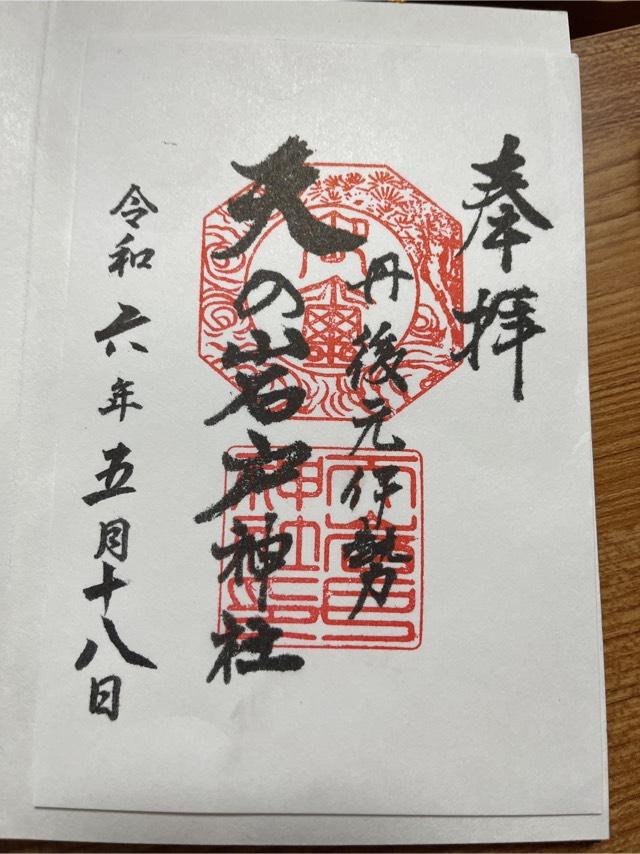 奉拝
丹後元伊勢
天の岩戸神社
令和六年五月十八日